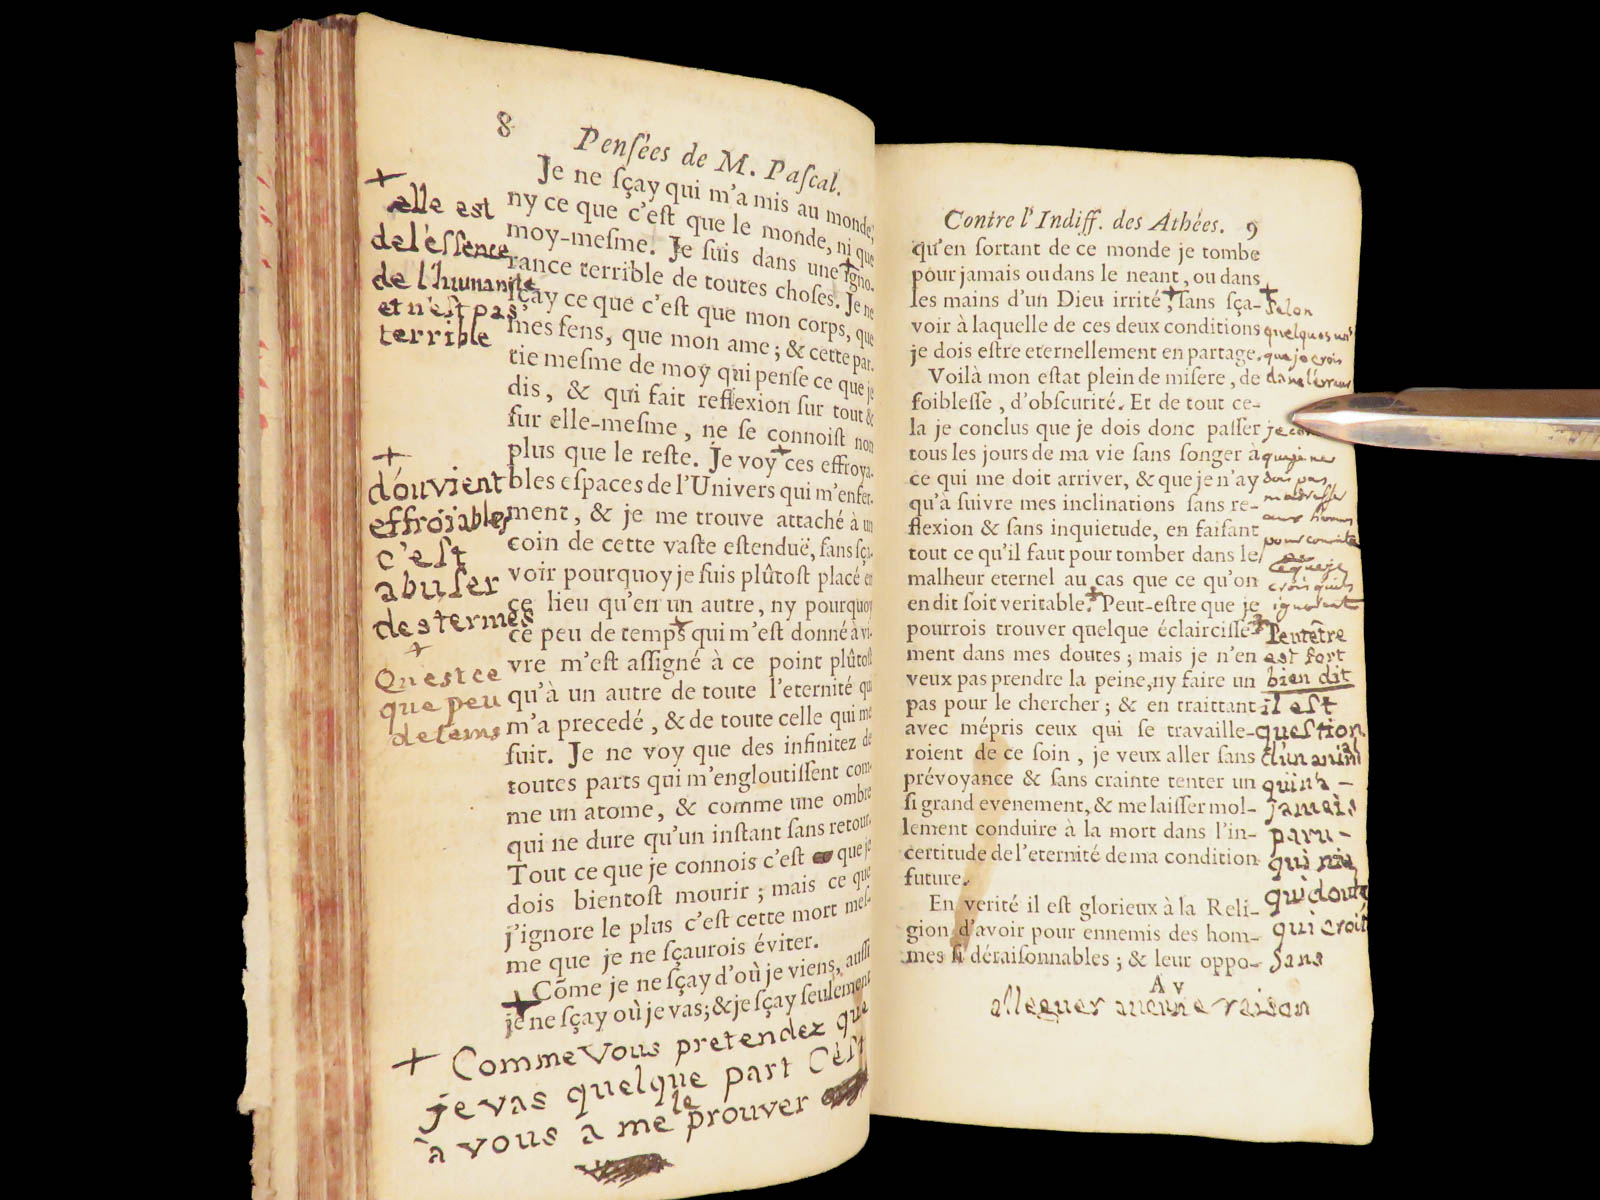 8
Pensées de M. Pascal.
Je ne sçay qui m'a mis au monde,
ny ce que c'est que le monde, ni que
moy-mesme. Je suis dans une igno-
rance terrible de toutes choses. Je ne
sçay ce que c'est que mon corps, que
mes sens, que mon ame ; & cette par-
tie mesme de moy qui pense ce que je
dis, & qui fait reflexion sur tout &
sur elle-mesme, ne se connoist non
plus que le reste. Je voy ces effroya-
bles espaces de l'Univers qui m'enfer-
ment, & je me trouve attaché à un
coin de cette vaste estenduë, sans sça-
voir pourquoy je suis plûtost placé en
ce lieu qu'en un autre, ny pourquoy
ce peu de temps qui m'est donné à vi-
vre m'est assigné à ce point plûtost
qu'à un autre de toute l'eternité qui
m'a precedé, & de toute celle qui me
suit. Je ne voy que des infinitez de
toutes parts qui m'engloutissent com-
me un atome, & comme une ombre
qui ne dure qu'un instant sans retour.
Tout ce que je connois c'est que je
dois bientost mourir ; mais ce que
j'ignore le plus c'est cette mort mes-
me que je ne sçaurois éviter.
Cõme je ne sçay d'où je viens, aussi
je ne sçay où je vas; & je sçay seulement
+
elle est
de l'éssence
de l'humanité
et n'est pas
terrible
+
d'ou vient
effroiables
c'est
abuser
des termes
+
Quest ce
que peu
de tems
+ Comme Vous pretendez que
je vas quelque part C'est
à vous a me le prouver
Contre l'Indiff. des Athées. 9
qu'en sortant de ce monde je tombe
pour jamais ou dans le neant, ou dans
les mains d'un Dieu irrité, sans sça-
voir à laquelle de ces deux conditions
je dois estre eternellement en partage.
Voilà mon estat plein de misere, de
foiblesse, d'obscurité. Et de tout ce-
la je conclus que je dois donc passer
tous les jours de ma vie sans songer à
ce qui me doit arriver, & que je n'ay
qu'à suivre mes inclinations sans re-
flexion & sans inquietude, en faisant
tout ce qu'il faut pour tomber dans le
malheur eternel au cas que ce qu'on
en dit soit veritable. Peut-estre que je
pourrois trouver quelque éclaircisse-
ment dans mes doutes ; mais je n'en
veux pas prendre la peine, ny faire un
pas pour le chercher ; & en traittant
avec mépris ceux qui se travaille-
roient de ce soin, je veux aller sans
prévoyance & sans crainte tenter un
si grand evenement, & me laisser mol-
lement conduire à la mort dans l'in-
certitude de l'eternité de ma condition
future.
En verité il est glorieux à la Reli-
gion d'avoir pour ennemis des hom-
mes si déraisonnables ; & leur oppo-
A v
+
selon
quelques uns
que je crois
dans l'erreur
pour
ce que je
crois quils
ignorent
+
Peutêtre
est fort
bien dit
il est
question
d'un anim
quin'a
jamais
paru -
qui nie
qui doute
qui croit
sans
alleguer aucune raison